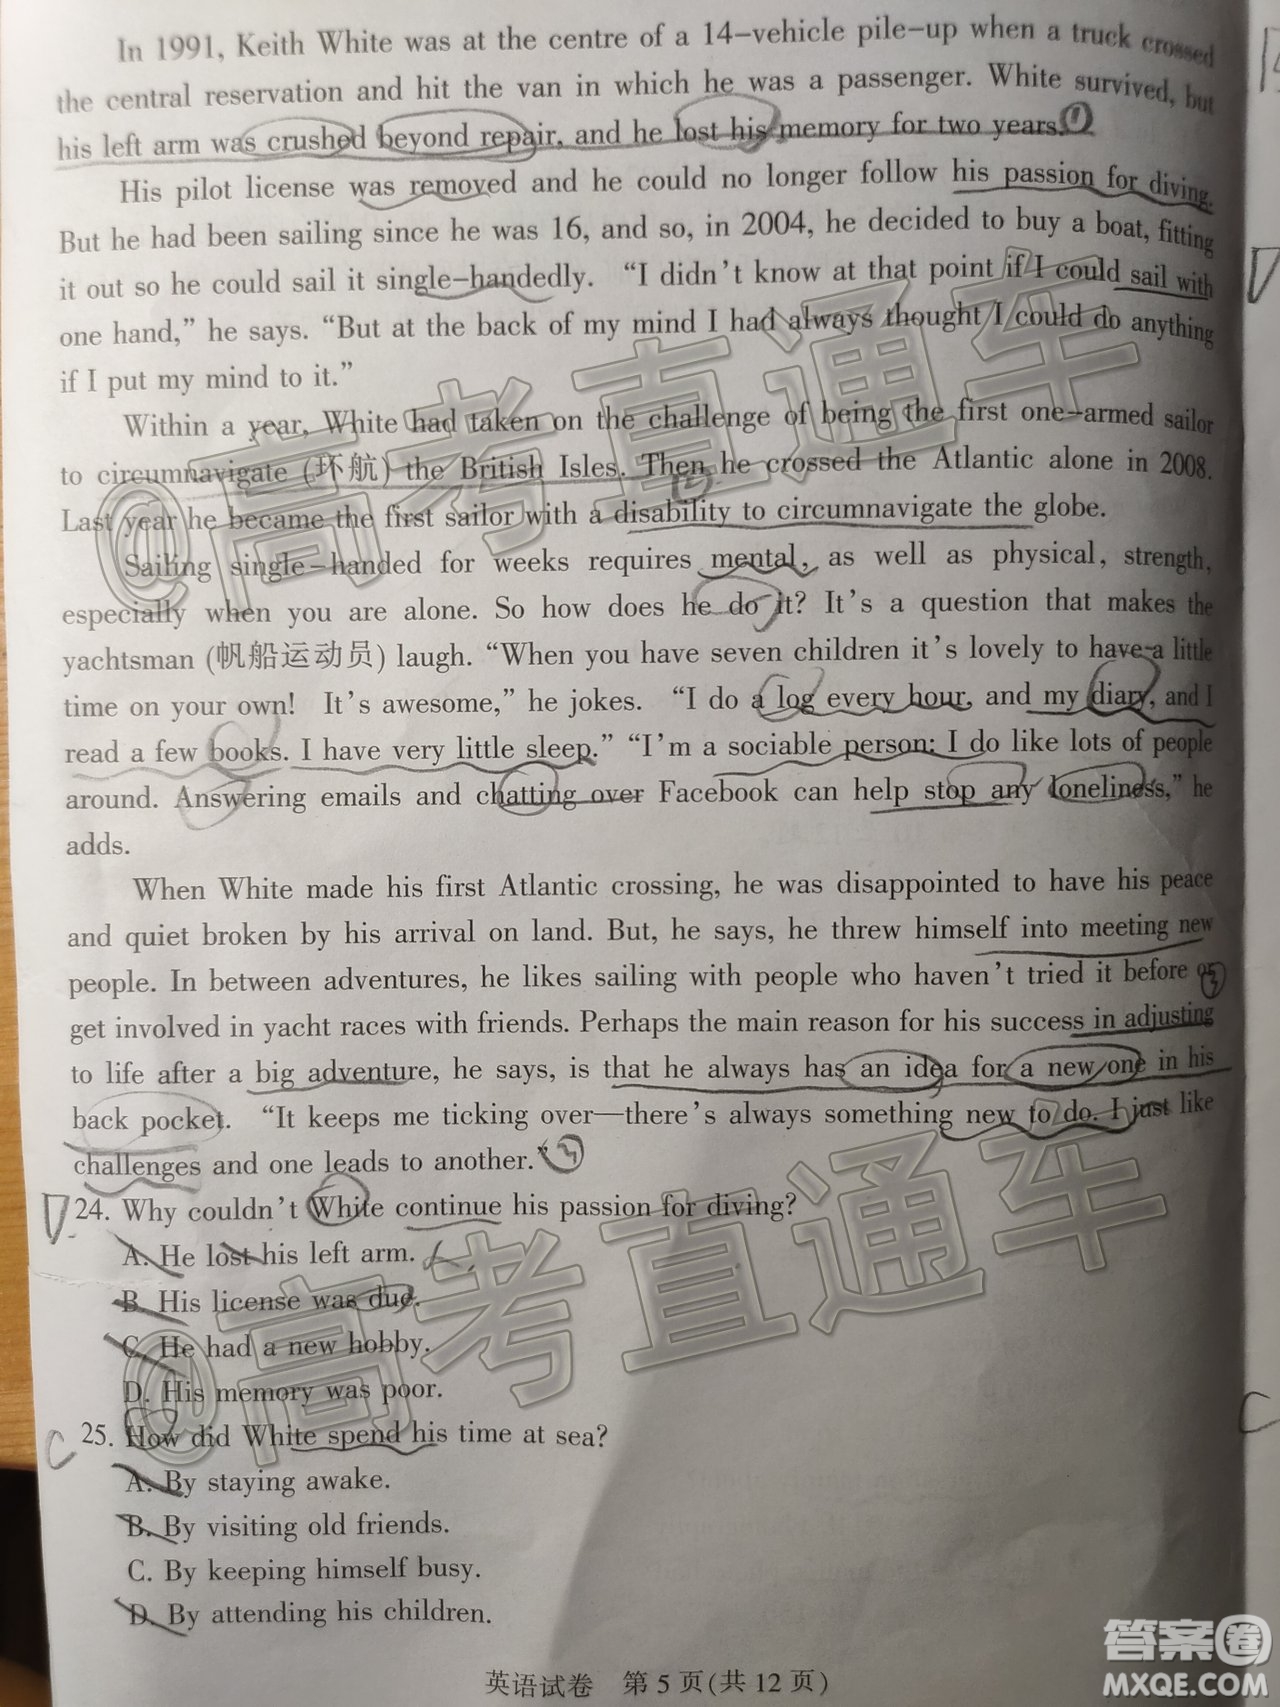 In 1991, Keith White was at the centre of a 14-vehicle pile-up when a truck crossed
the central reservation and hit the van in which he was a passenger. White survived, but
his left arm was crushed beyond repair, and he lost his memory for two years.
His pilot license was removed and he could no longer follow his passion for diving.
But he had been sailing since he was 16, and so, in 2004, he decided to buy a boat, fitting
it out so he could sail it single-handedly. “I didn't know at that point if I could sail with
one hand,” he says. “But at the back of my mind I had always thought I could do anything
if I put my mind to it.”
Within a year, White had taken on the challenge of being the first one-armed sailor
to circumnavigate (环航) the British Isles. Then he crossed the Atlantic alone in 2008.
Last year he became the first sailor with a disability to circumnavigate the globe.
Sailing single-handed for weeks requires mental, as well as physical, strength,
especially when you are alone. So how does he do it? It's a question that makes the
yachtsman (帆船运动员) laugh. “When you have seven children it's lovely to have a little
time on your own! It's awesome,” he jokes. “I do a log every hour, and my diary, and I
read a few books. I have very little sleep.” “I'm a sociable person: I do like lots of people
around. Answering emails and chatting over Facebook can help stop any loneliness,” he
adds.
When White made his first Atlantic crossing, he was disappointed to have his peace
and quiet broken by his arrival on land. But, he says, he threw himself into meeting new
people. In between adventures, he likes sailing with people who haven't tried it before or
get involved in yacht races with friends. Perhaps the main reason for his success in adjusting
to life after a big adventure, he says, is that he always has an idea for a new one in his
back pocket. “It keeps me ticking over—there's always something new to do. I just like
challenges and one leads to another.”
24. Why couldn't White continue his passion for diving?
A. He lost his left arm.
B. His license was due.
C. He had a new hobby.
D. His memory was poor.
C 25. How did White spend his time at sea?
A. By staying awake.
B. By visiting old friends.
C. By keeping himself busy.
D. By attending his children.
英语试卷 第 5 页(共 12 页)
@高考直通车
@高考直通车
答案圈
MXQE.COM